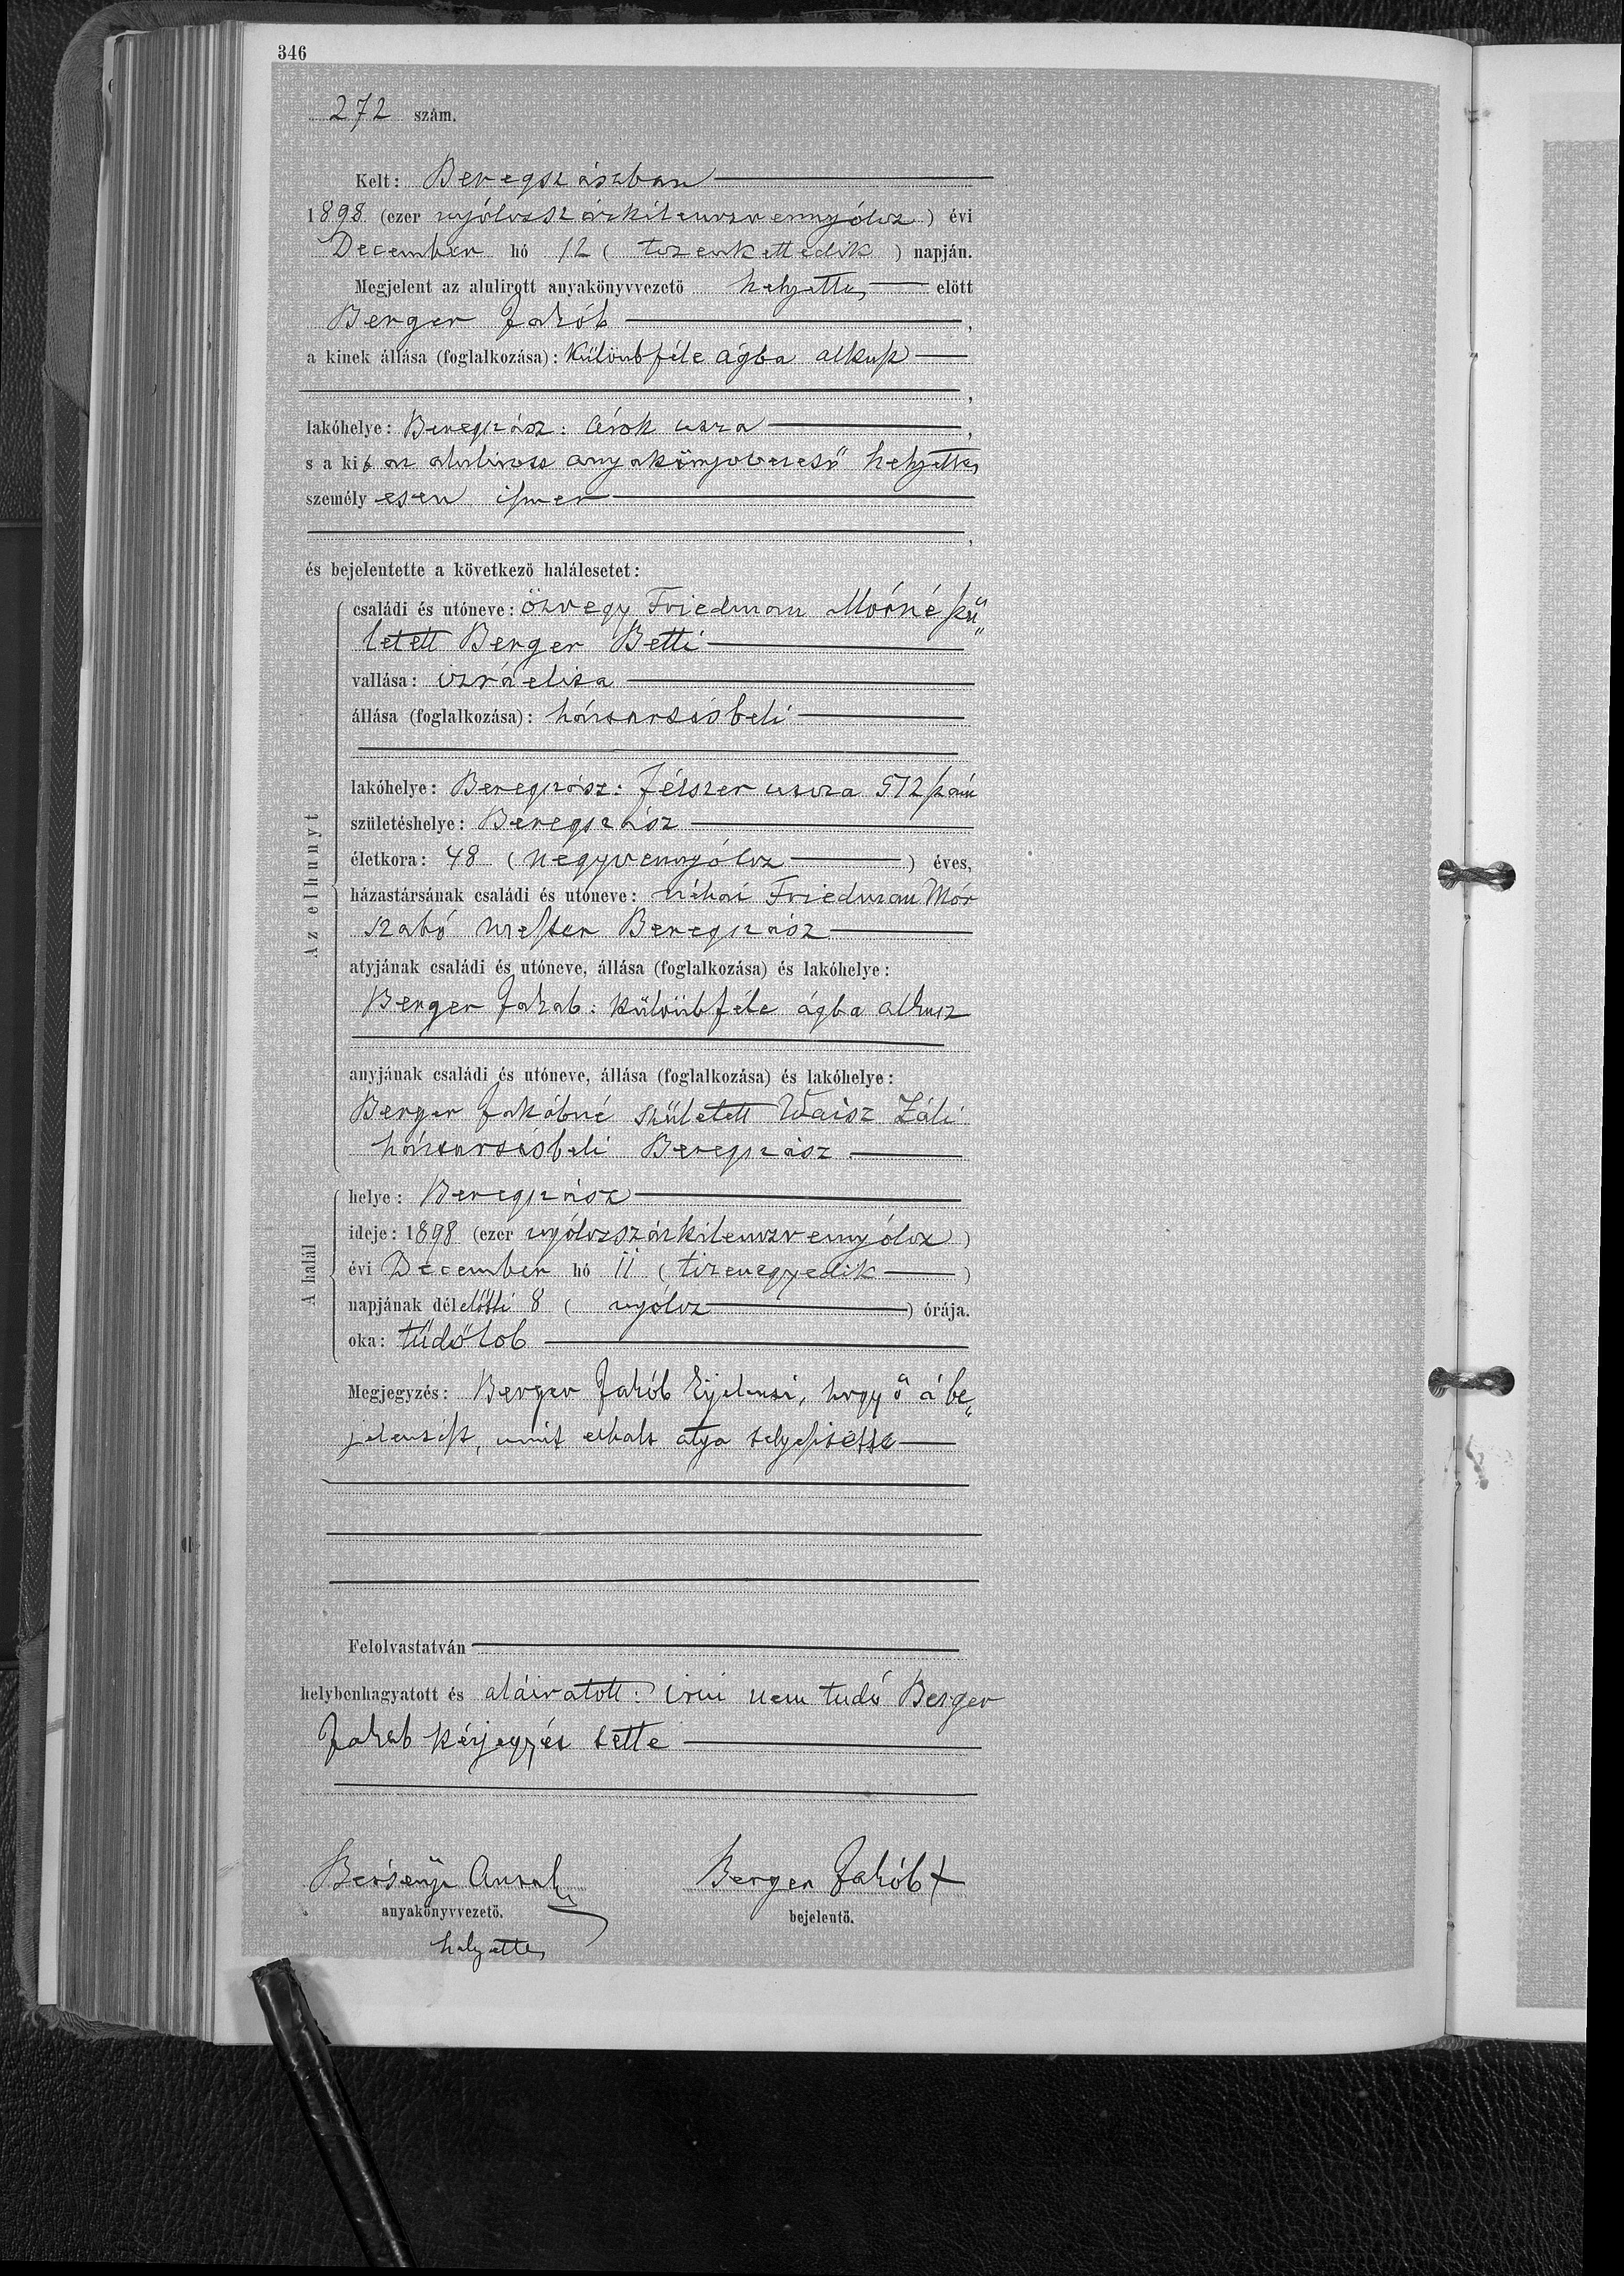 346
272 szám.
Kelt: Beregszászban
1898 (ezer nyólcszázkilenczvennyólcz) évi
December hó 12 ( tizenkettedik ) napján.
Megjelent az alulirott anyakönyvvezető helyettes előtt
Berger Jakób ,
a kinek állása (foglalkozása): különbféle ágba alkusz
,
lakóhelye: Beregszász: Árok utza ,
s a kit az alulirott anyakönyvvezető helyettes
személyesen ismer
,
és bejelentette a következő halálesetet:
Az elhunyt
családi és utóneve: özvegy Friedman Mórné szü„
letett Berger Betti
vallása: izráelita
állása (foglalkozása): háztartásbeli
lakóhelye: Beregszász: Félszer utcza 512 szám
születéshelye: Beregszász
életkora: 48 (negyvennyólcz ) éves,
házastársának családi és utóneve: néhai Friedman Mór
szabó mester Beregszász
atyjának családi és utóneve, állása (foglalkozása) és lakóhelye:
Berger Jakab: különbféle ágba alkusz
anyjának családi és utóneve, állása (foglalkozása) és lakóhelye:
Berger Jakábné született Waisz Záli
háztartásbeli Beregszász
A halál
helye: Beregszász
ideje: 1898 (ezer nyólczszázkilenczvennyólcz)
évi December hó 11 (tizenegyedik )
napjának délelőtti 8 ( nyólcz ) órája.
oka: tüdőlob
Megjegyzés: Berger Jakób kijelenti, hogy ő a be„
jelentést, mint elhalt atya teljesitette
Felolvastatván
helybenhagyatott és aláiratott: irni nem tudó Berger
Jakab kézjegyét tette
Bersenyi
anyakönyvvezető.
helyettes
Berger Jakób +
bejelentő.